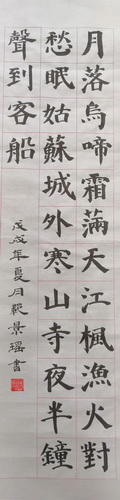 月落烏啼霜滿天江楓漁火對
愁眠姑蘇城外寒山寺夜半鐘
聲到客船
戊戌年夏月范景瑤書